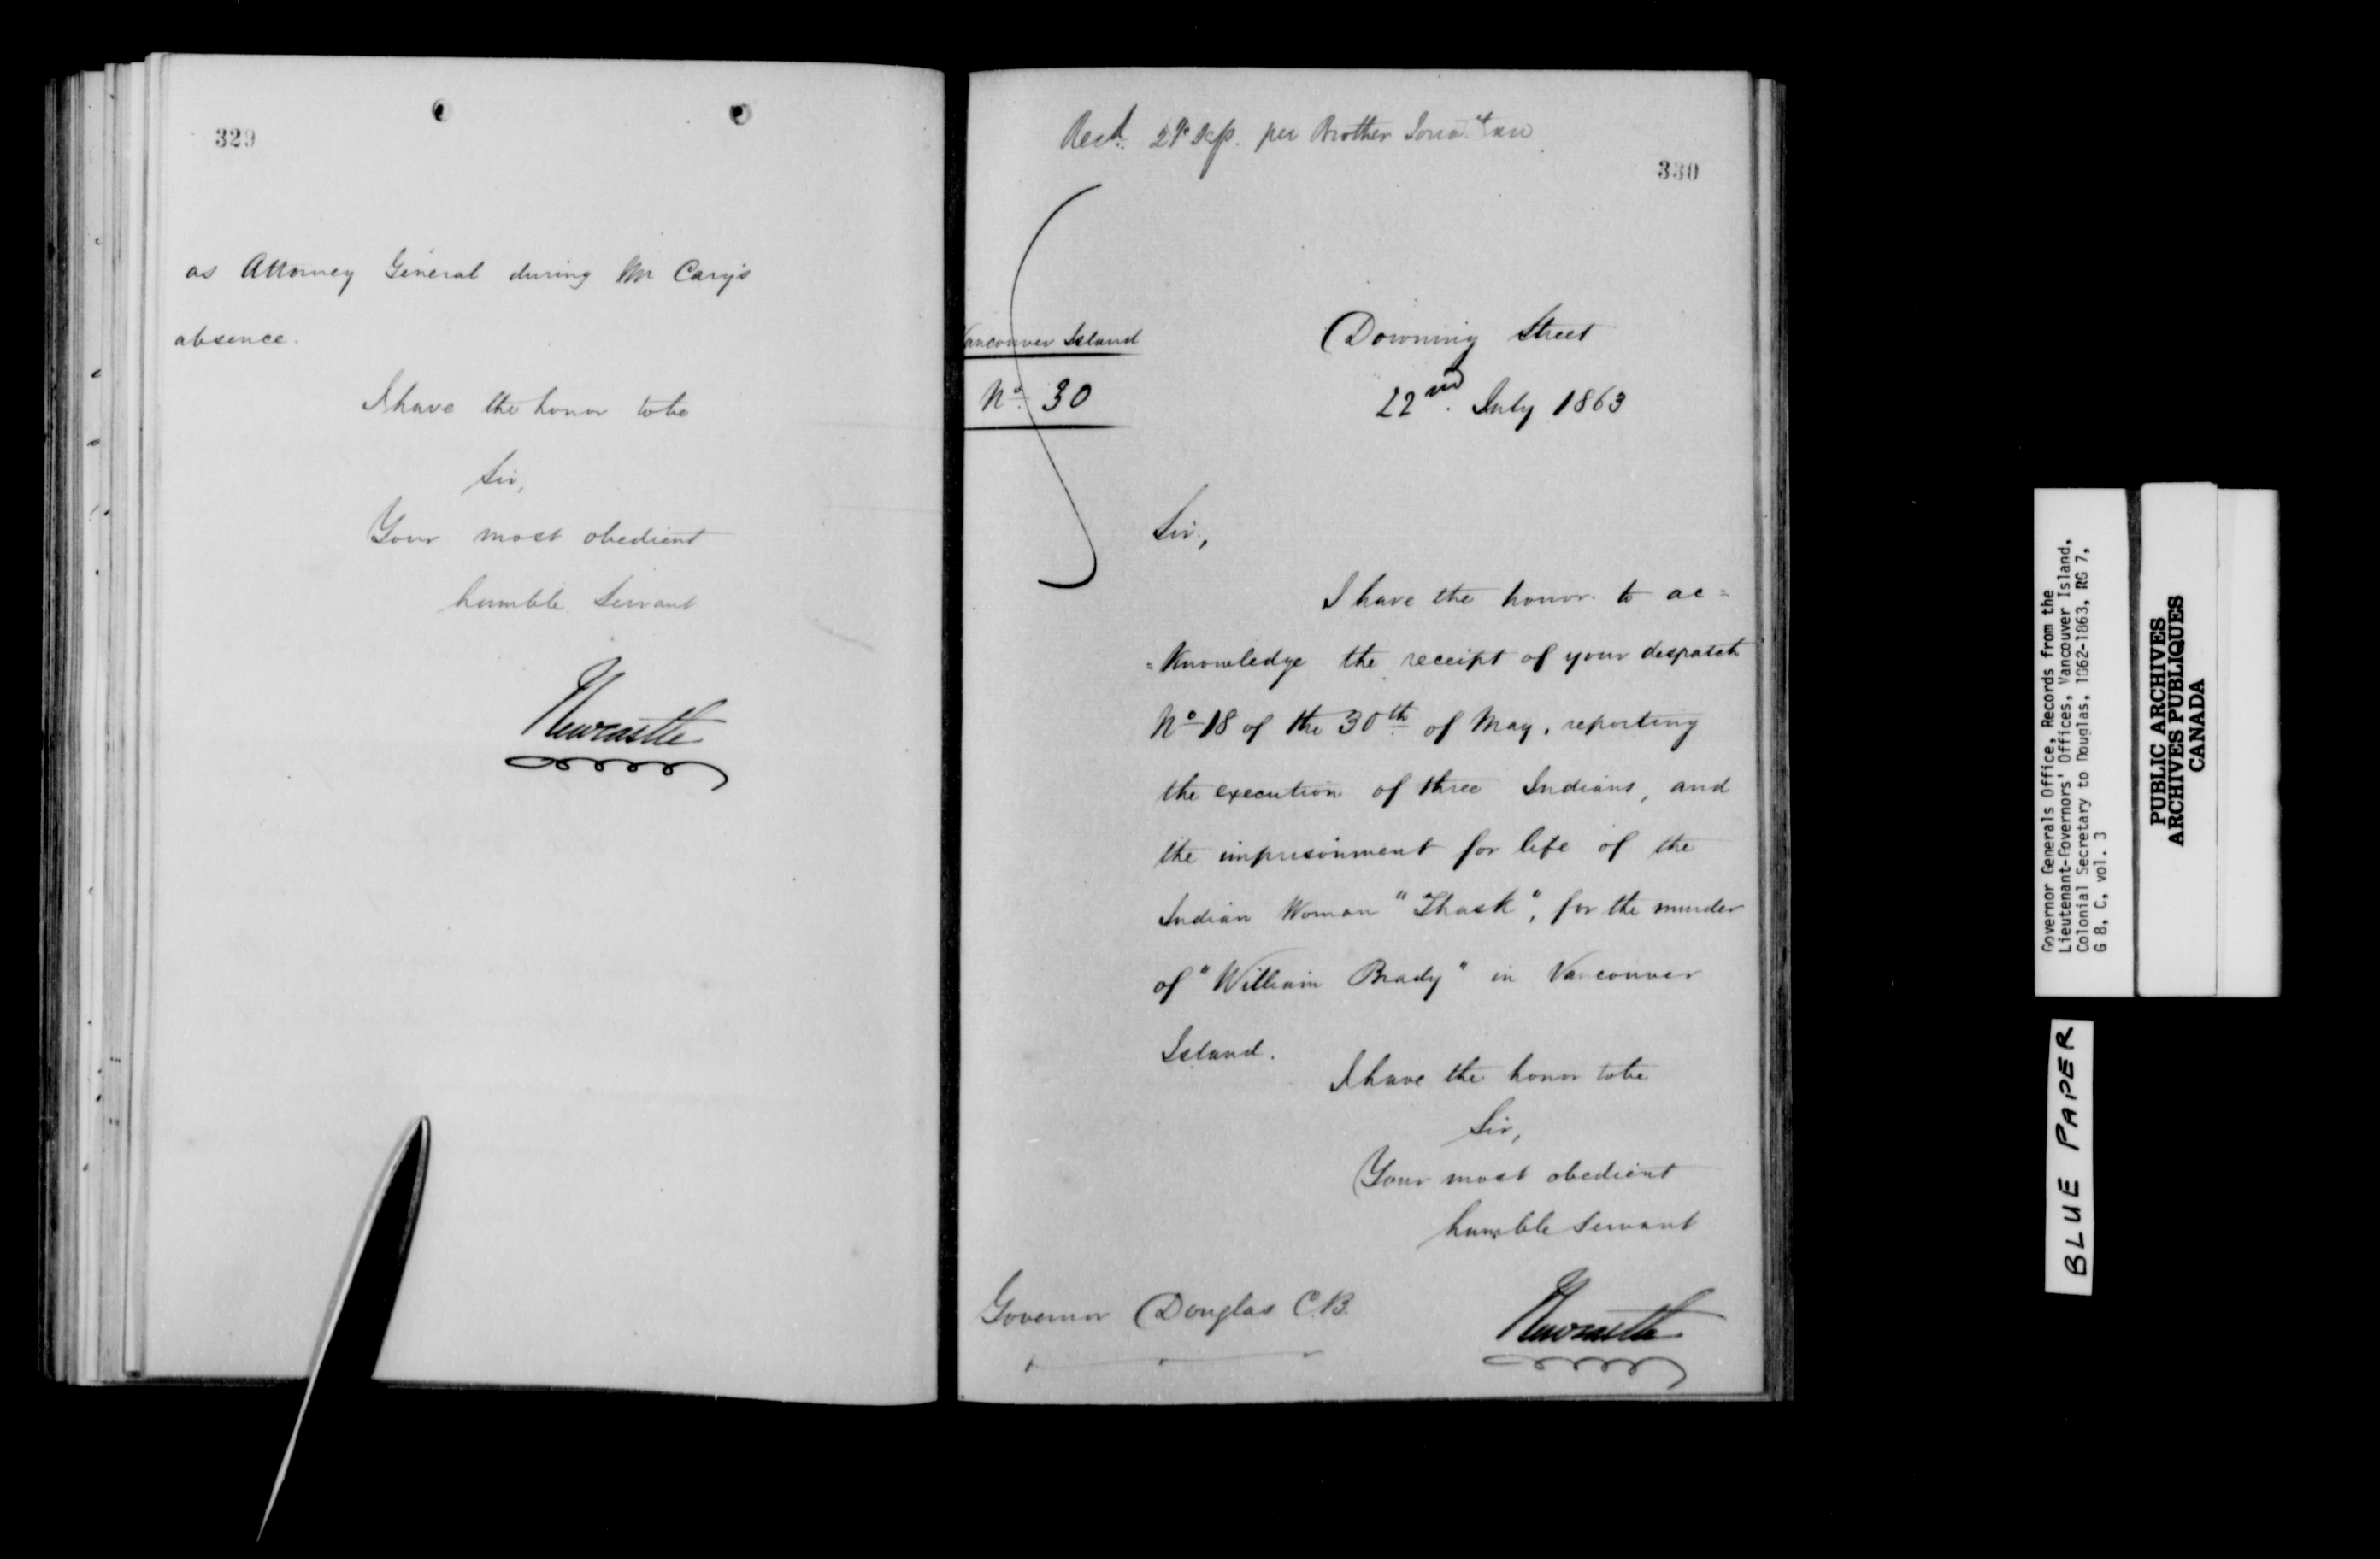 329
as Attorney General during Mr Cary's
absence.
I have the honor to be
Sir,
Your most obedient
humble Servant
Newcastle
Recd. Sep. per Brother Jonathan
330
Vancouver Island
No. 30
Downing Street
22nd. July 1863
Sir,
I have the honor to ac=
=knowledge the receipt of your despatch
No 18 of the 30th of May, reporting
the execution of three Indians, and
the imprisonment for life of the
Indian Woman "Thask", for the murder
of "William Brady" in Vancouver
Island.
I have the honor to be
Sir,
Your most obedient
humble Servant
Newcastle
Governor Douglas C.B.
Governor Generals Office, Records from the
Lieutenant-Governors' Offices, Vancouver Island,
Colonial Secretary to Douglas, 1862-1863, RG 7,
G 8, C, vol. 3
PUBLIC ARCHIVES
ARCHIVES PUBLIQUES
CANADA
BLUE PAPER